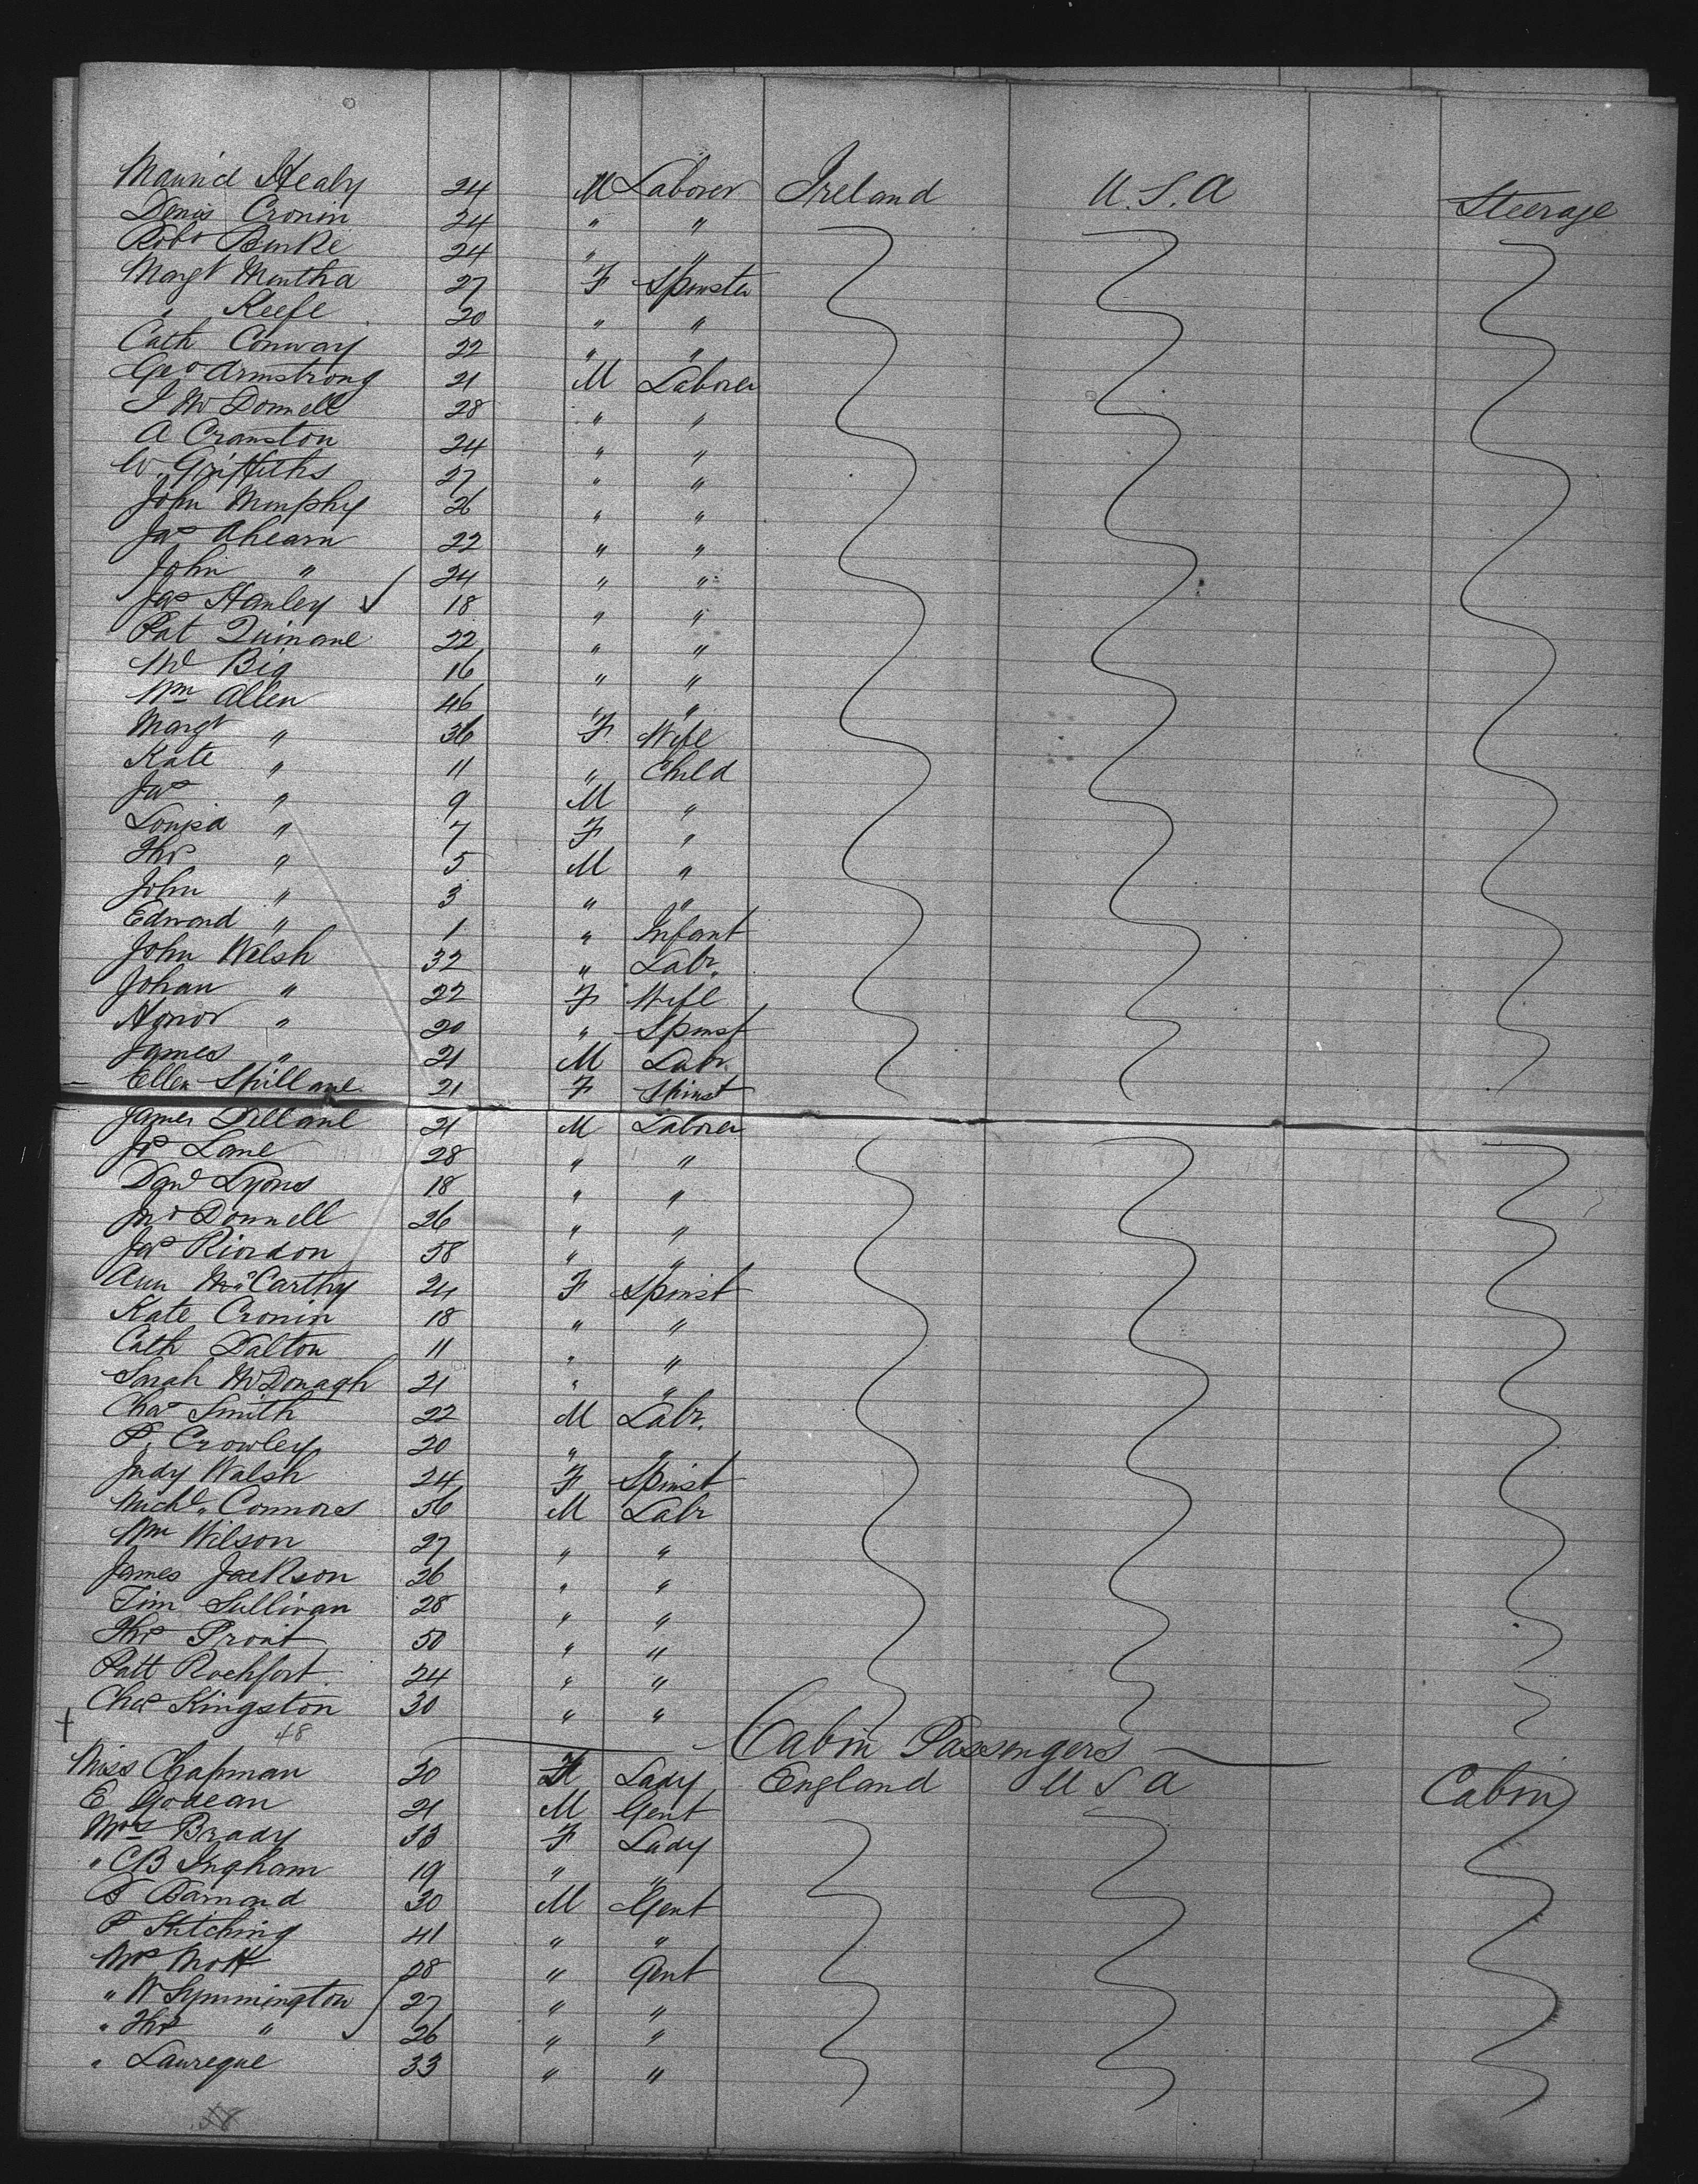 Mauric Healy 24 M Laborer Ireland U.S.A Steerage
Denis Cronin 24 " "
Robt Burke 24 " "
Margt Murtha 27 F Spinster
" Keefe 20 " "
Cath Conway 22 " "
Geo Armstrong 21 M Laborer
J McDonnell 28 " "
A Cranston 24 " "
W. Griffiths 27 " "
John Murphy 26 " "
Jas Ahearn 22 " "
John " 24 " "
Jas Hanley 18 " "
Pat Quinane 22 " "
Md Big 16 " "
Wm Allen 46 " "
Margt " 36 F Wife
Kate " 11 " Child
Jas " 9 M "
Louisa " 7 F "
Ths " 5 M "
John " 3 " "
Edward " 1 " Infant
John Welsh 32 " Labr.
Johan " 22 F Wife
Honor " 20 " Spinst
James " 21 M Labr.
Ellen Spillane 21 F Spinst
James Dillane 21 M Laborer
Js Lane 28 " "
Danl Lyons 18 " "
Jno Donnell 26 " "
Jas Riordon 58 " "
Ann McCarthy 24 F Spinst
Kate Cronin 18 " "
Cath Dalton 11 " "
Sarah McDonagh 21 " "
Chas Smith 22 M Labr.
P. Crowley 20 " "
Judy Walsh 24 F Spinst
Michl. Connors 56 M Labr
Wm Wilson 27 " "
James Jackson 36 " "
Tim Sullivan 28 " "
Ths Prout 50 " "
Patt Rochfort 24 " "
Chas Kingston 30 " "
48
Cabin Passengers
Miss Chapman 30 F Lady England U S A Cabin
E Godean 21 M Gent
Mrs Brady 33 F Lady
" CB Ingham 19 " "
B Barnard 30 M Gent
P Stitching 41 " "
Mr Mott 28 " Gent
" W Symmington 27 " "
" Ths " 26 " "
" Laureque 33 " "
58